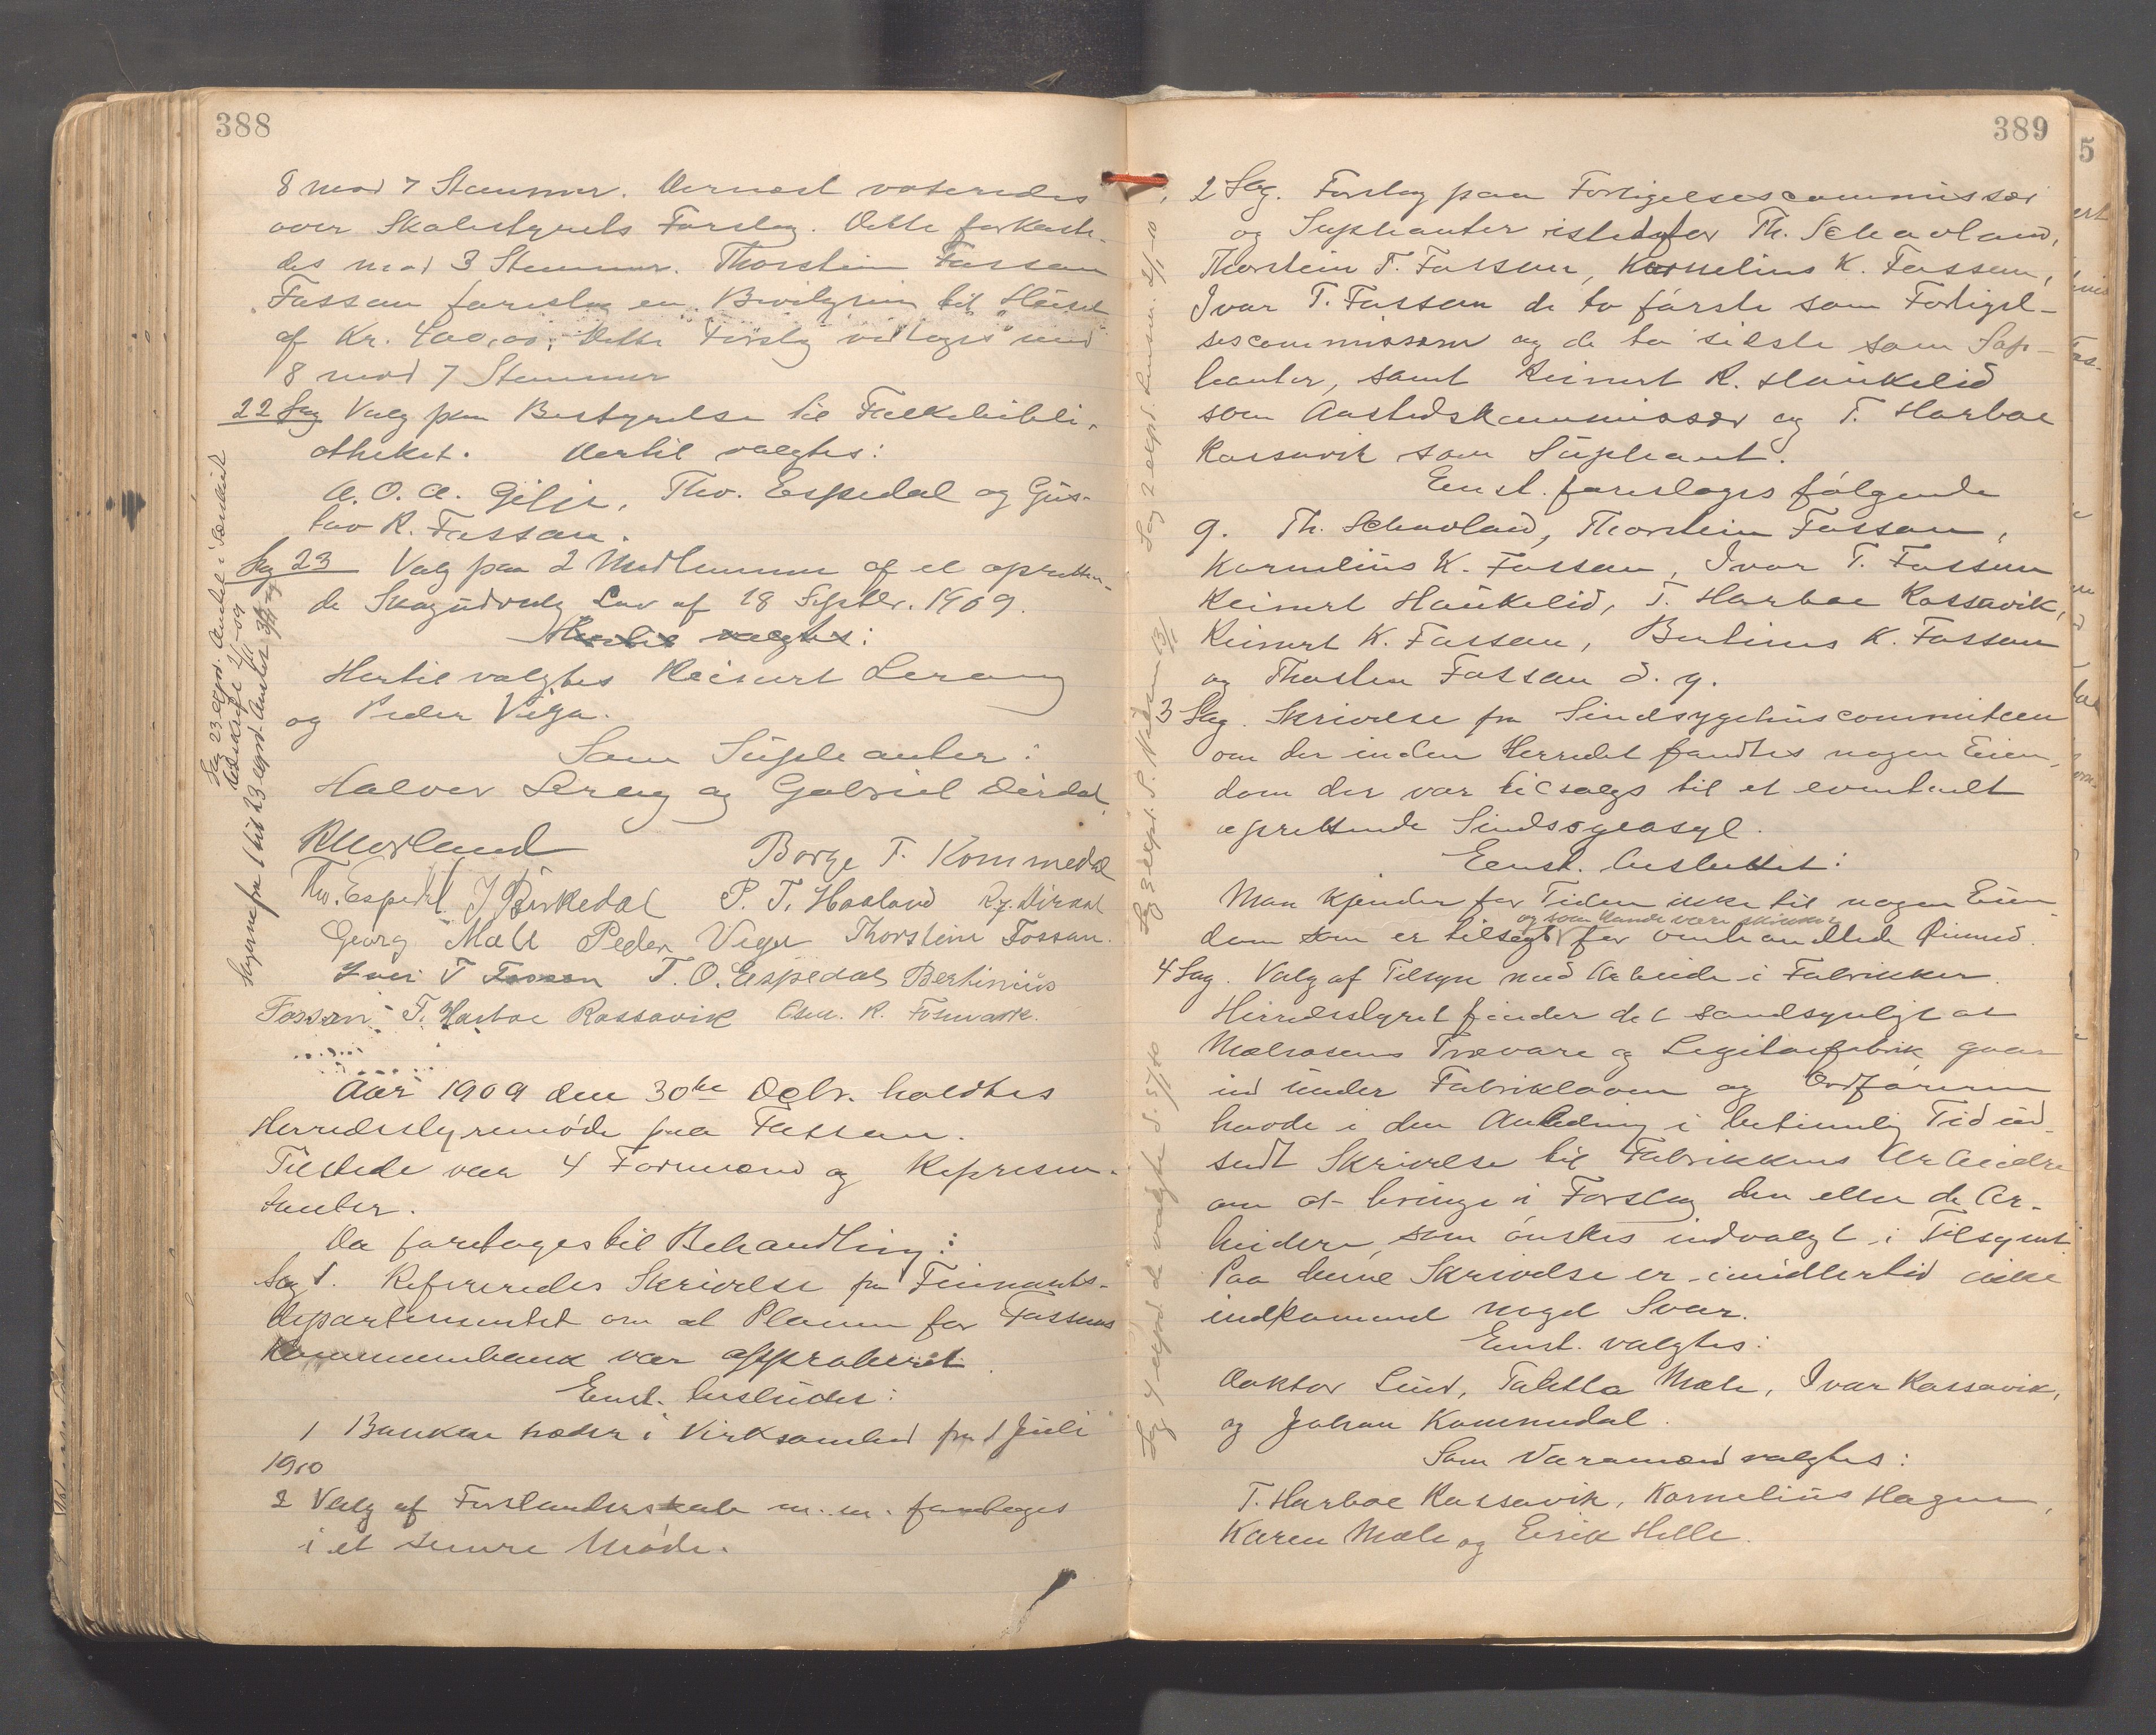 388
8 mod 7 Stemmer. Dernæst voteredes
over Skolestyrets Forslag. Dette forkaste-
des mod 3 Stemmer. Thorstein Fossan
Fossan foreslog en Bevilgning til Huset
af Kr. 400,00. Dette Forslag vedtoges med
8 mod 7 Stemmer
22 Sag Valg paa Bestyrelse til Folkebibli-
otheket. Dertil valgtes:
A. O. A. Gilje, Thv. Espedal og Gus-
tav R. Fossan.
Sag 23 Valg paa 2 Medlemmer af et opretten-
de Skogudvalg Lov af 18 Septbr. 1909.
Hertil valgtes:
Hertil valgtes Reinert Lerang
og Peder Vega.
Som Supleanter:
Halvor Lerang og Gabriel Dirdal
R Morland Borge T. Kommedal
Thv. Espedal J Birkedal P. T. Haaland Rg. Dirdal
Georg Mæle Peder Vega Thorstein Fossan.
Iver T Fossan T. O. Espedal Bertinius
Fossan T. Harboe Rossavik Chr. R. Fosmark.
Aar 1909 den 30te Decbr. holdtes
Herredsstyremøde paa Fossan.
Tilstede var 4 Formænd og Repræsen-
tanter.
Da foretoges til Behandling:
Sag 1. Refereredes Skrivelse fra Finants-
departementet om at Planen for Fossans
Kommunebank var approberet.
Enst. besluttes:
1 Banken træder i Virksomhed fra 1 Juli
1910
2 Valg af Forstanderskab m. m. foretoges
i et senere Møde.
Sag 23 expd. Amtet i Landbrug
Sagerne fra 1 til 23 expd. Amtet
389
2 Sag. Forslag paa Forligelsescommissær
og Supleanter istedetfor Th. Schavland,
Thorstein T. Fossan, Kornelius K. Fossan,
Ivar T. Fossan de to første som Forligel-
sescommissærer og de to sidste som Sup-
leanter, samt Reinert R. Haukelid
som Aastedskommissær og T. Harboe
Rossavik som Supleant.
Enst. foresloges følgende
9. Th. Schavland, Thorstein Fossan,
Kornelius K. Fossan, Ivar T. Fossan
Reinert Haukelid, T. Harboe Rossavik,
Reinert K. Fossan, Bertinus K. Fossan
og Thosten Fossan d. y.
3 Sag. Skrivelse fra Sindsygehuscommiteen
om der inden Herredet fandtes nogen Eien-
dom der var tilsalgs til et eventuelt
oprettende Sindsygeasyl.
Enst. besluttet:
Man kjender for Tiden ikke til nogen Eien-
og som kunde være skikket
dom som er tilsalgs for omhandlede Øiemed.
4 Sag. Valg af Tilsyn med Arbeide i Fabrikker.
Herredsstyret finder det sandsynligt at
Mælsosens Trævare og Legetøifabrik gaar
ind under Fabrikloven og Ordføreren
havde i den Anledning i betimelig Tid ud-
sendt Skrivelse til Fabrikkens Arbeidere
om at bringe i Forslag den eller de Ar-
beidere, som ønskes indvalgt i Tilsynet.
Paa denne Skrivelse er imidlertid ikke
indkommet noget Svar.
Enst. valgtes:
Doktor Lund, Taletta Mæle, Ivar Rossavik,
og Johan Kommedal.
Som Varamænd valgtes:
T. Harboe Rossavik, Kornelius Hagen,
Karen Mæle og Eirik Helle.
Sag 3 expd. P. Nielsen 13/1
Sag 4 expd d valgte d.
5